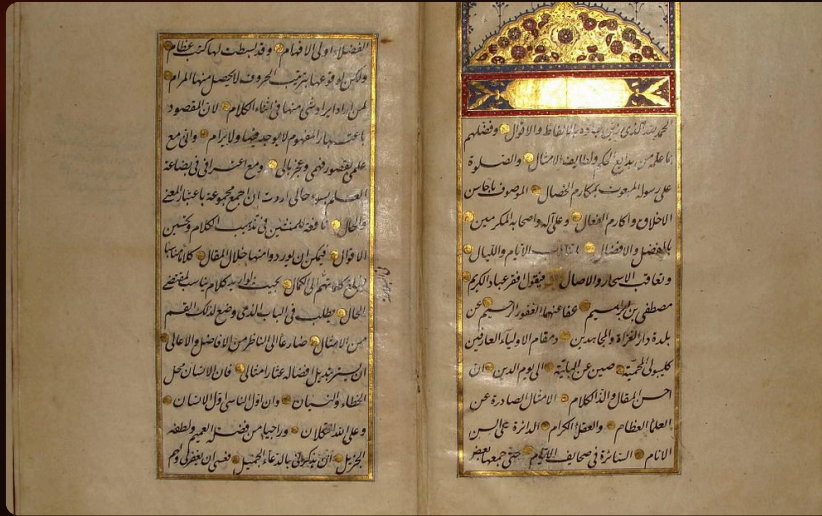 الحمد لله الذى زين عباده بالالفاظ والاقوال وفضلهم
بما علمه من بدايع الحكم ولطايف الامثال والصلوة
على رسوله المبعوث بمكارم الخصال الموصوف بمحاسن
الاخلاق واكارم الفعال وعلى آله واصحابه المكرمين
بالفضل والافضال الايام والليال
وتعاقب الاسحار والاصال فيقول افقر عباد الكريم
مصطفى بن ابراهيم عفا عنهما الغفور الرحيم عن
بلدة دار الغزاة والمجاهدين ومقام الاولياء العارفين
كليبولى المحمية صين عن البلية الى يوم الدين ان
احسن المقال والذ الكلام الامثال الصادرة عن
العلماء العظام والعقلاء الكرام الدائرة على السن
الانام المتناثرة فى صحايف الايام حتى جمعها بعض
الفضلاء اولى الافهام وقد بسطت لها كتب عظام
ولكن اوقوعها بترتيب الحروف لا يحصل منها المرام
لمن اراد ايراد شى منها فى اثناء الكلام لان المقصود
باعتبار المفهوم لا يوجد فيها ولا يرام وانى مع
علمى بقصور فهمى وعجز بالى ومع اعترافى فى بضاعة
العلم بسوء حالى اردت ان اجمع مجموعة باعتبار المعنى
والحال نافعة للمنشئين فى تهذيب الكلام وتحسين
الاقوال فيمكن ان يوردوا منها خلال المقال كلاما
كلامهم الى الكمال بحيث كلام يناسب لمقتضى
الحال يطلب فى الباب الذى وضع لذلك القسم
من الامثال ضارعا الى الناظر من الافاضل والاعالى
ان يستر بذيل افضاله عثار امثالى فان الانسان محل
الخطاء والنسيان وان اول الناس اول الانسان
وعلى الله التكلان وراجيا من فضله العميم ولطفه
الجزيل ان يذكرونى بالدعاء الجميل فعسى ان يغفر لى ولهم